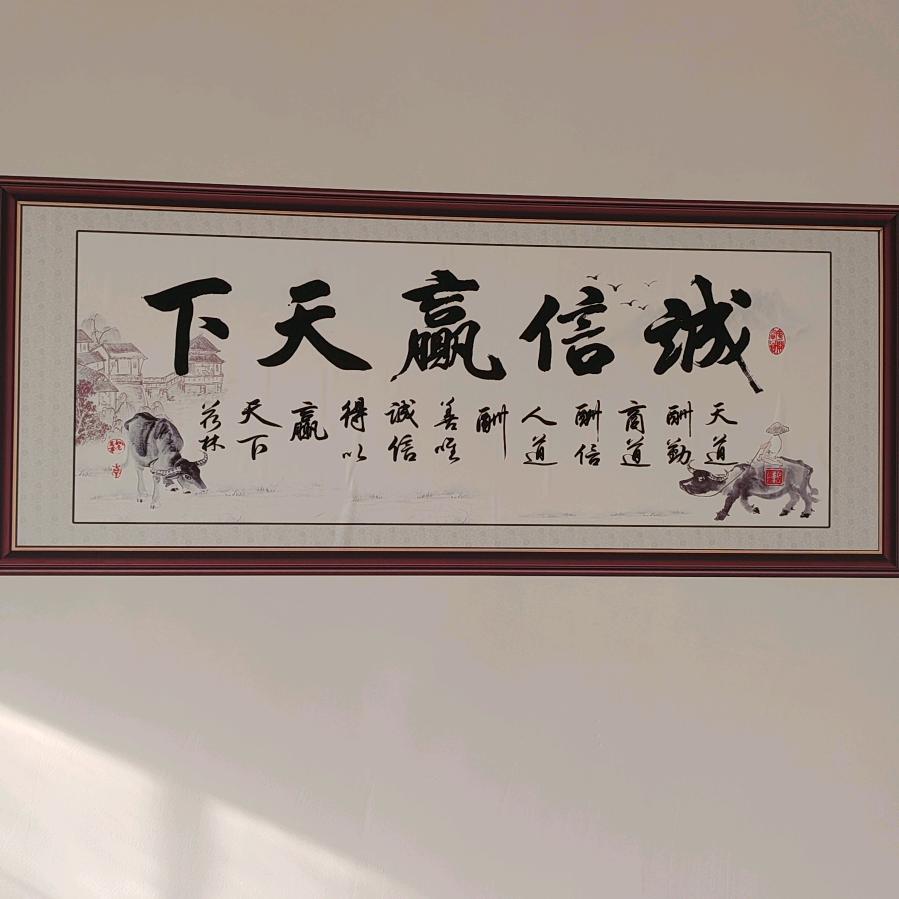 诚信赢天下
天道
酬勤
商道
酬信
人道
酬
善唯
诚信
得以
赢
天下